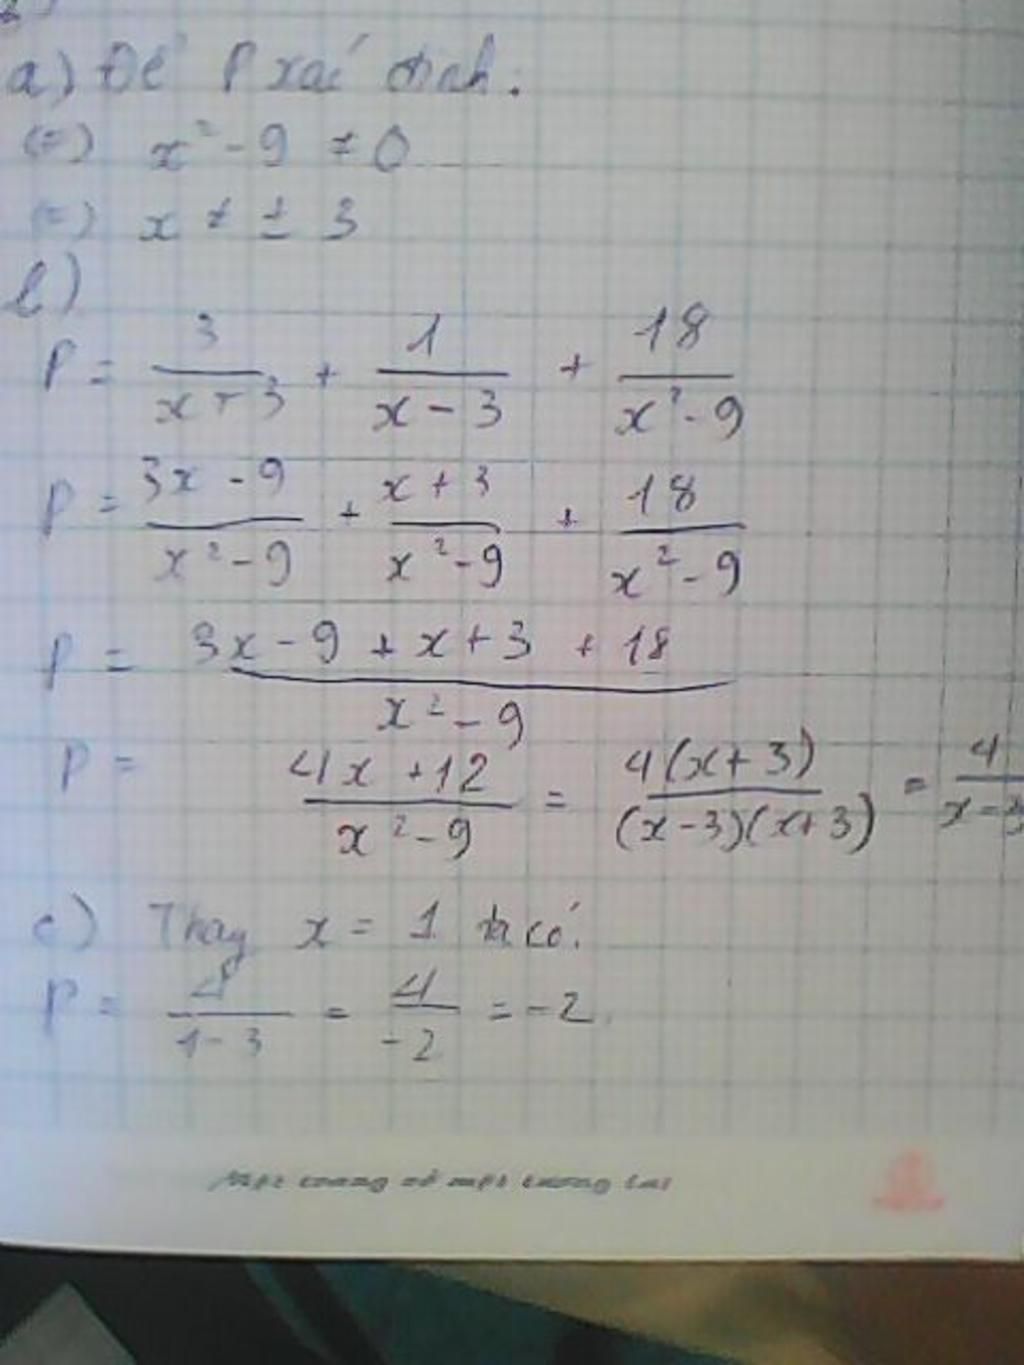 a) Để P xác định:
(=) x² - 9 ≠ 0
(=) x ≠ ± 3
b)
P = 3/(x + 3) + 1/(x - 3) + 18/(x² - 9)
P = (3x - 9)/(x² - 9) + (x + 3)/(x² - 9) + 18/(x² - 9)
P = (3x - 9 + x + 3 + 18)/(x² - 9)
P = (4x + 12)/(x² - 9) = 4(x + 3)/((x - 3)(x + 3)) = 4/(x - 3)
c) Thay x = 1 ta có:
P = 4/(1 - 3) = 4/-2 = -2.